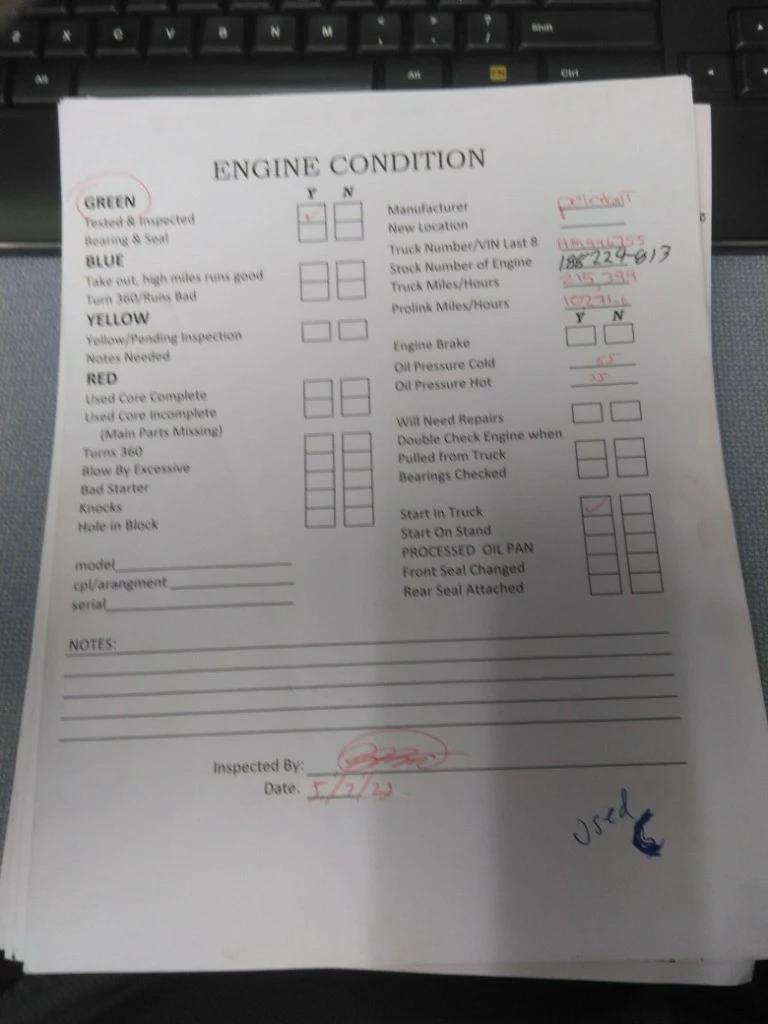 Z X C V B N M < , > . ? / Shift
Alt Alt FN Ctrl
ENGINE CONDITION
GREEN Y N
Tested & Inspected
Bearing & Seal
BLUE
Take out, high miles runs good
Turn 360/Runs Bad
YELLOW
Yellow/Pending Inspection
Notes Needed
RED
Used Core Complete
Used Core Incomplete
(Main Parts Missing)
Turns 360
Blow By Excessive
Bad Starter
Knocks
Hole in Block
model
cpl/arangment
serial
Manufacturer
New Location
Truck Number/VIN Last 8 HM946755
Stock Number of Engine 188224-813
Truck Miles/Hours 215,399
Prolink Miles/Hours 10271.6
Y N
Engine Brake
Oil Pressure Cold 55
Oil Pressure Hot 35
Will Need Repairs
Double Check Engine when
Pulled from Truck
Bearings Checked
Start In Truck
Start On Stand
PROCESSED OIL PAN
Front Seal Changed
Rear Seal Attached
NOTES:
Inspected By:
Date.
used